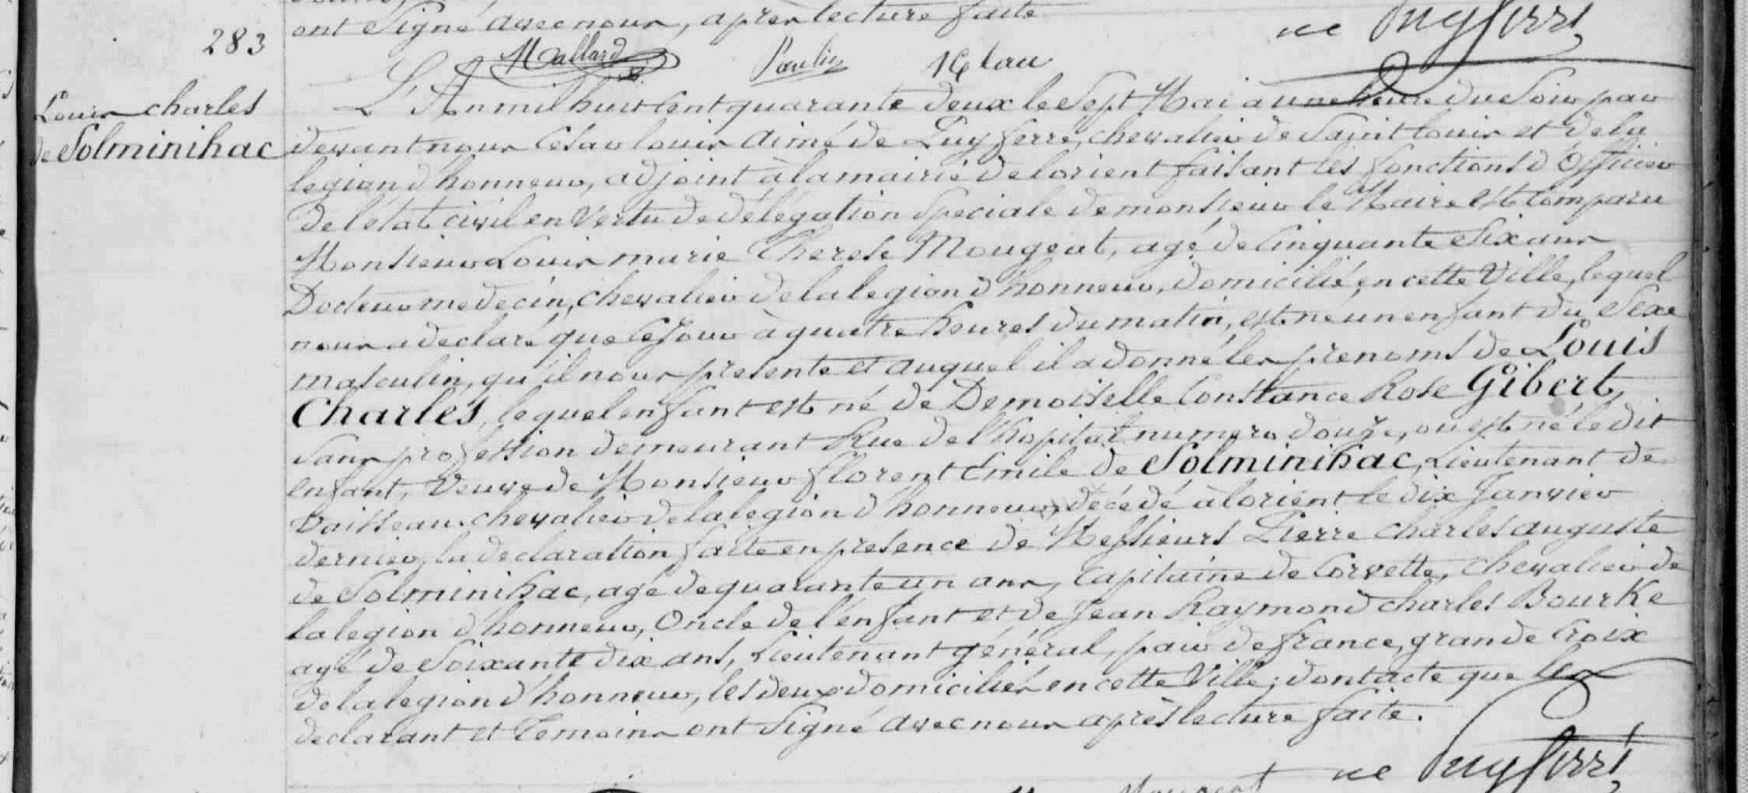 ont Signé avec nous, après lecture faite
283
de Puyferré
Mallard Paulin
Louis charles
de Solminihac
L'An mil huit cent quarante deux le Sept Mai à une heure du Soir par
devant nous Cesar louis aimé de Puyferré, chevalier de Saint louis et de la
legion d'honneur, adjoint à la mairie de lorient faisant les fonctions d'officier
de l'etat civil en Vertu de délégation Speciale de monsieur le Maire est comparu
Monsieur Louis marie Therese Mougeat, agé de Cinquante Six ans
Docteur medecin, chevalier de la legion d'honneur, domicilié en cette Ville, lequel
nous a declaré que ce Jour à quatre heures du matin, est né un enfant du Sexe
masculin, qu'il nous presente et auquel il a donné les prenoms de Louis
Charles, lequel enfant est né de Demoiselle Constance Rose Gibert,
Sans profession demeurant Rue de l'hopital numero douze, ou est né le dit
enfant, Veuve de Monsieur florent Emile de Solminihac, Lieutenant de
Vaisseau chevalier de la legion d'honneur, décédé à lorient le dix Janvier
dernier, la declaration faite en presence de Messieurs Pierre charles auguste
de Solminihac, agé de quarante un ans, Capitaine de Corvette, chevalier de
la legion d'honneur, Oncle de l'enfant et de Jean Raymond charles Bourke
agé de Soixante dix ans, Lieutenant général, pair de france, grande Croix
de la legion d'honneur, les deux domiciliés en cette Ville; dont acte que les
declarant et Temoins ont Signé avec nous après lecture faite.
de Puyferré
Mougeat